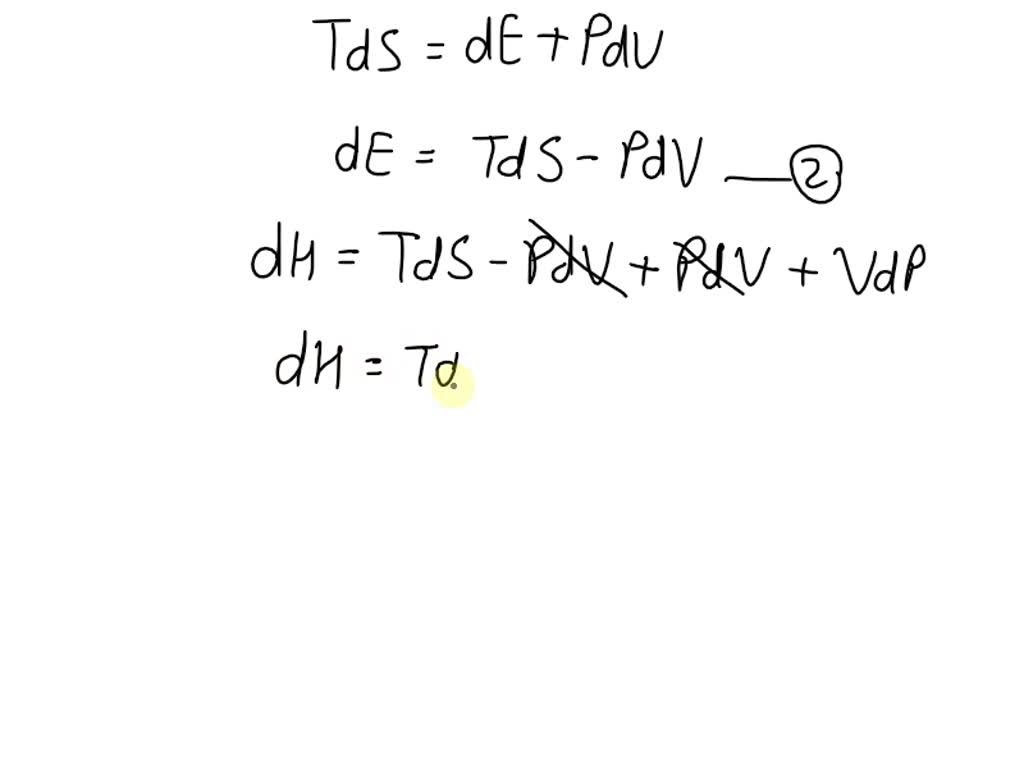 TdS = dE + PdV
dE = TdS - PdV —②
dH = TdS - PdV + PdV + VdP
dH = Td